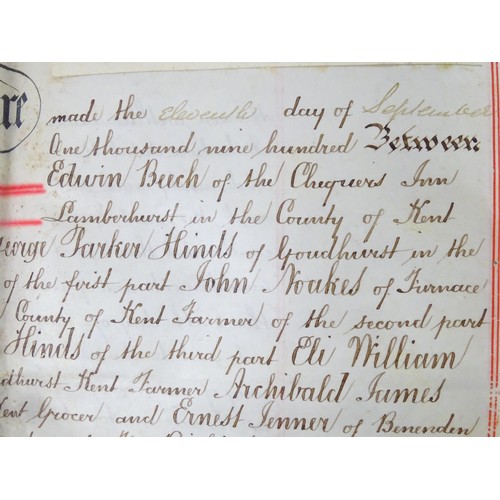 re
made the eleventh day of September
One thousand nine hundred Between
Edwin Beech of the Chequers Inn
Lamberhurst in the County of Kent
George Parker Hinds of Goudhurst in the
of the first part John Noakes of Furnace
County of Kent Farmer of the second part
Hinds of the third part Eli William
udhurst Kent Farmer Archibald James
Kent Grocer and Ernest Jenner of Benenden